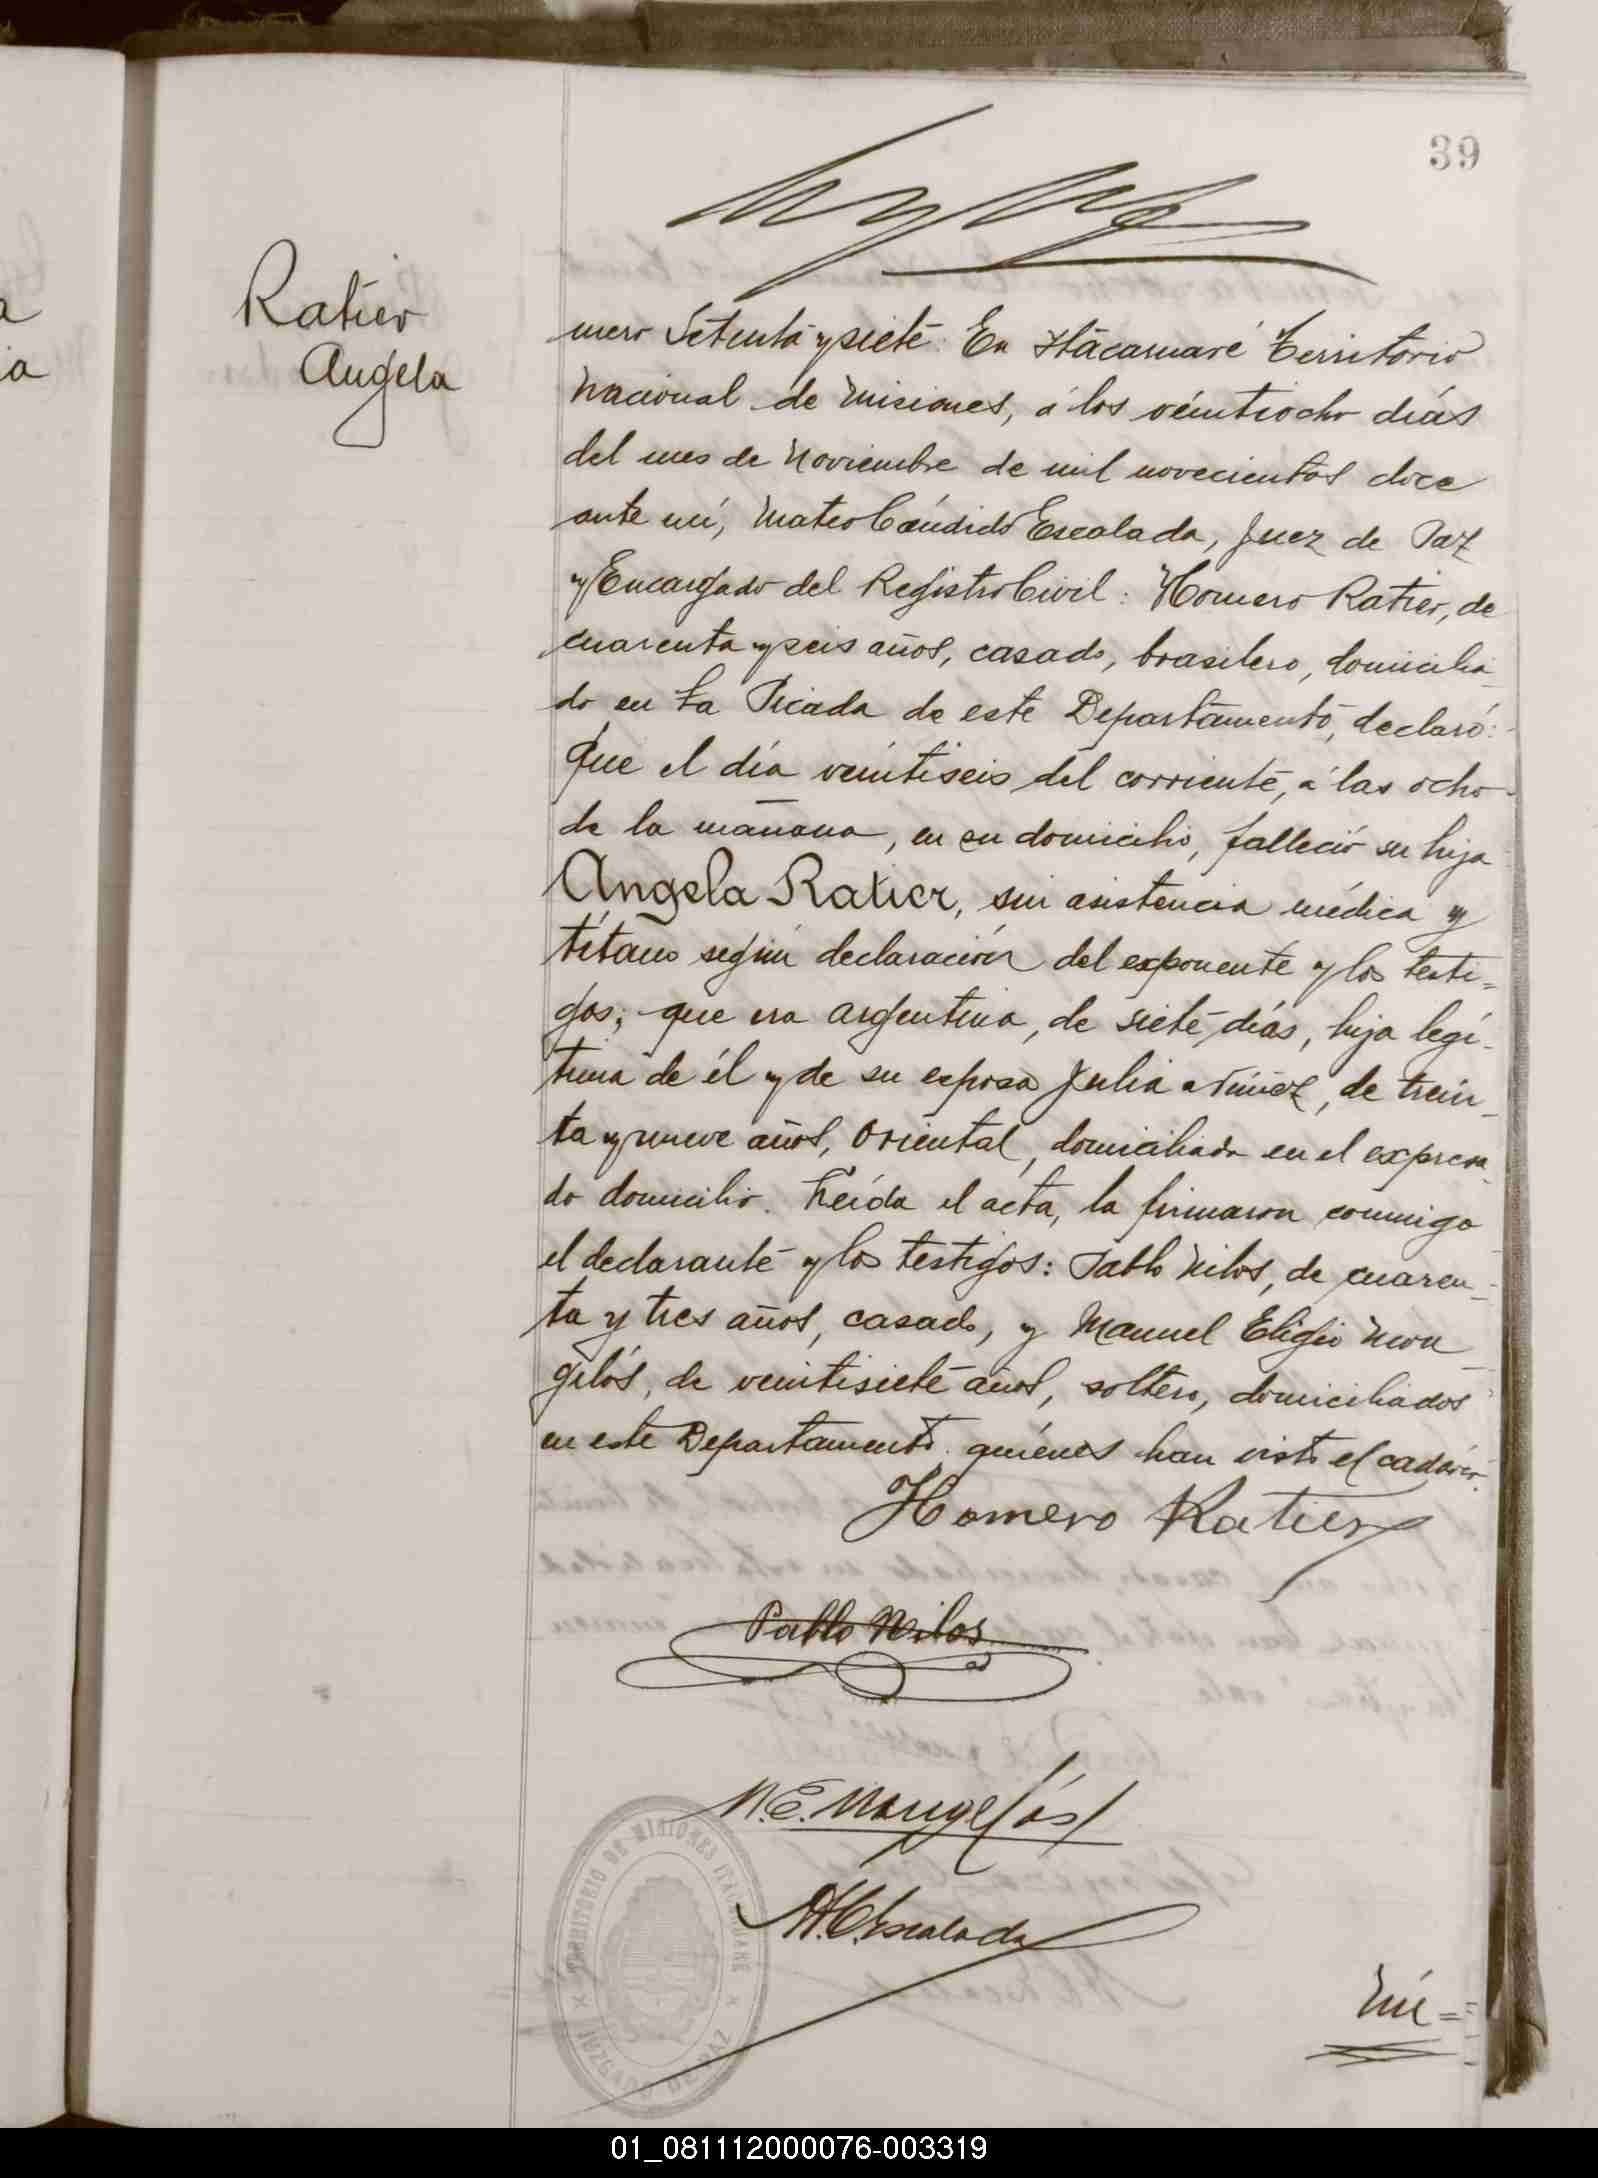 39
Ratier
Angela
mero Setenta y siete: En Itacaruaré Territorio
Nacional de Misiones, á los veintiocho días
del mes de Noviembre de mil novecientos doce
ante mí, Mateo Cándido Escalada, Juez de Paz
y Encargado del Registro Civil: Homero Ratier, de
cuarenta y seis años, casado, brasilero, domicilia-
do en La Picada de este Departamento, declaró:
Que el día veintiseis del corriente, á las ocho
de la mañana, en su domicilio, falleció su hija
Angela Ratier, sin asistencia médica y
tétano según declaración del exponente y los testi=
gos; que era argentina, de siete días, hija legí-
tima de él y de su esposa Julia Nuñez, de trein-
ta y nueve años, Oriental, domiciliada en el expresa-
do domicilio. Leída el acta, la firmaron conmigo
el declarante y los testigos: Pablo Nilos, de cuaren-
ta y tres años, casado, y Manuel Eligio Mon
gelós, de veintisiete años, soltero, domiciliados
en este Departamento. quiénes han visto el cadáver.
Homero Ratier
Pablo Nilos
M. E. Mongelós
M. C. Escalada
TERRITORIO DE MISIONES ITACARUARÉ
JUZGADO DE PAZ
Nú=
01_081112000076-003319